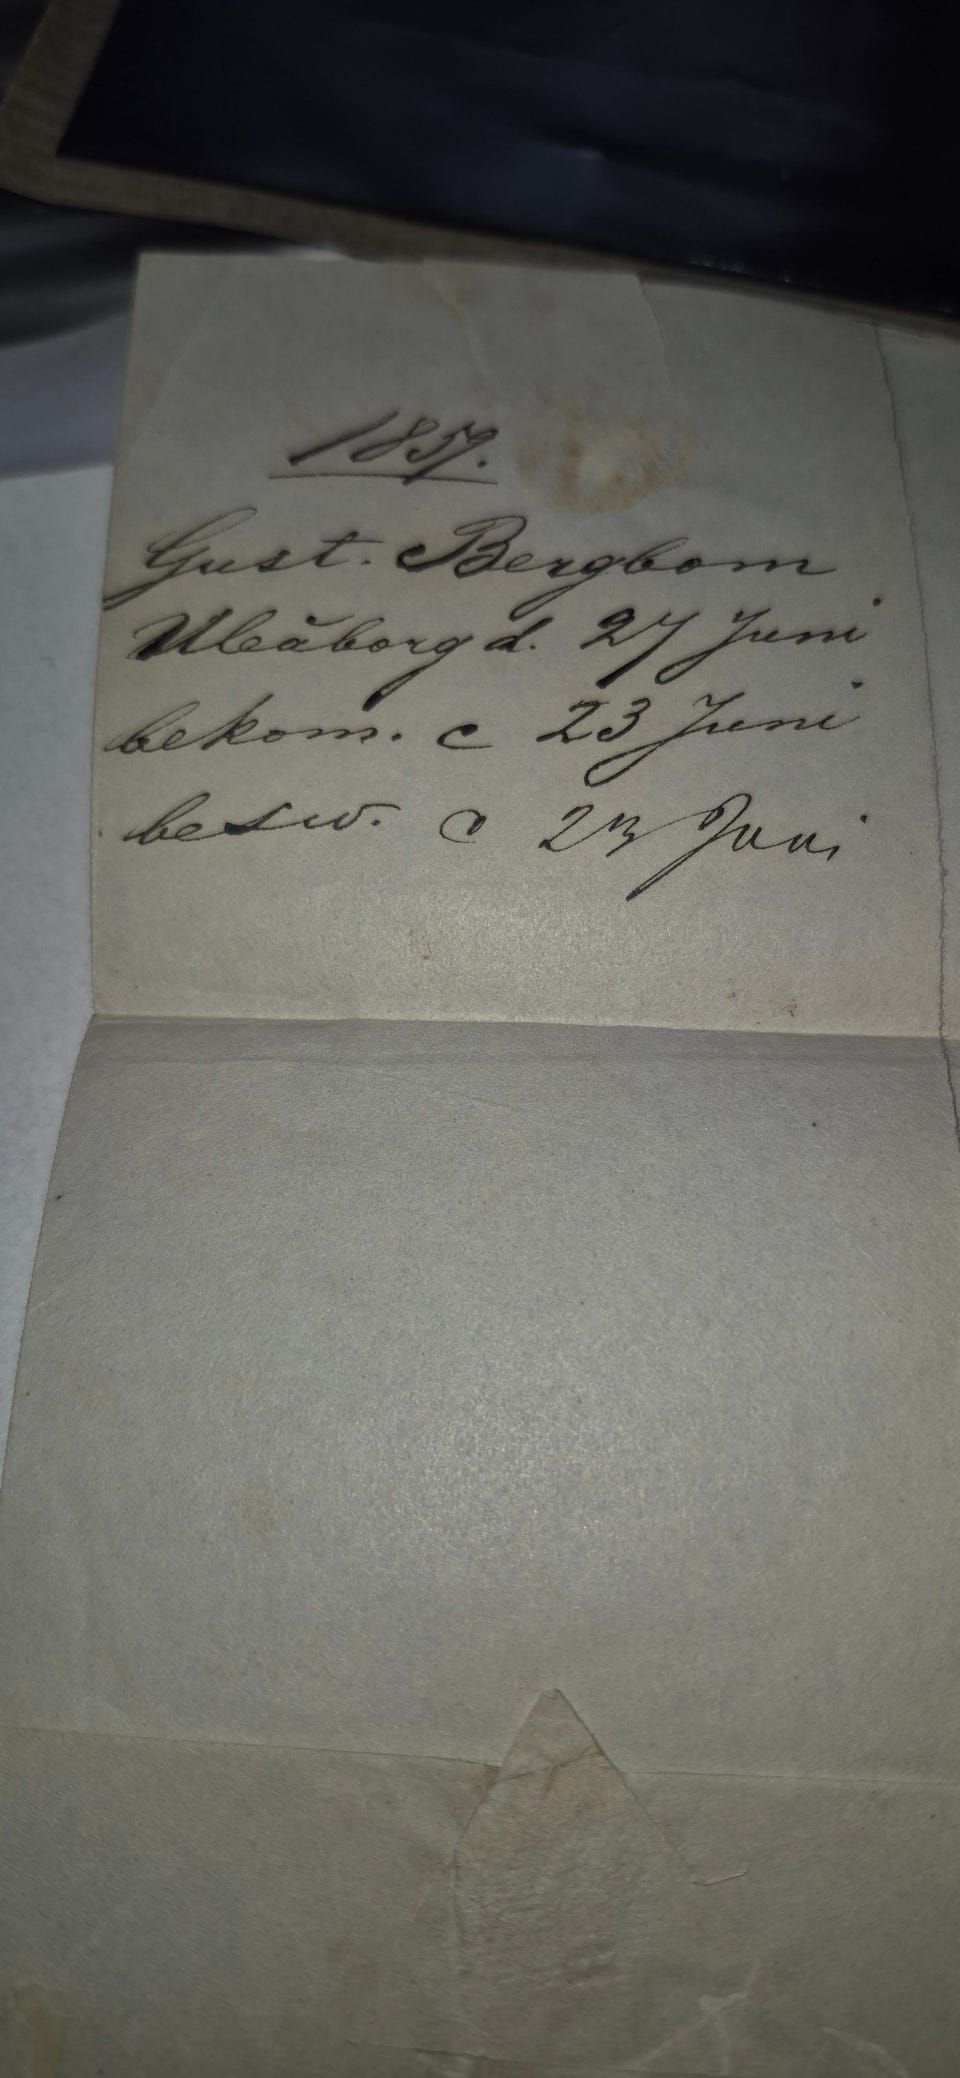 1859.
Gust. Bergbom
Uleåborg d. 27 Juni
bekom. c 23 Juni
besw. c 23 Juni